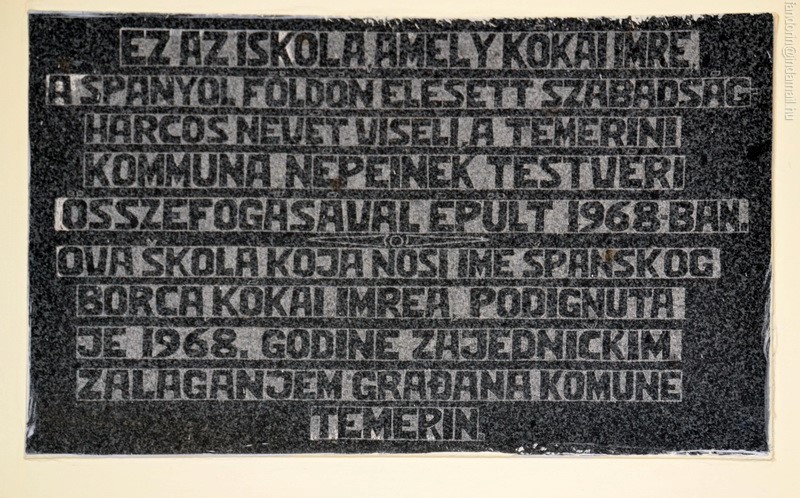 EZ AZ ISKOLA, AMELY KOKAI IMRE,
A SPANYOL FÖLDÖN ELESETT SZABADSÁG
HARCOS NEVÉT VISELI, A TEMERINI
KOMMUNA NÉPEINEK TESTVÉRI
ÖSSZEFOGÁSÁVAL ÉPÜLT 1968-BAN.
OVA ŠKOLA KOJA NOSI IME ŠPANSKOG
BORCA KOKAI IMREA, PODIGNUTA
JE 1968. GODINE ZAJEDNIČKIM
ZALAGANJEM GRAĐANA KOMUNE
TEMERIN